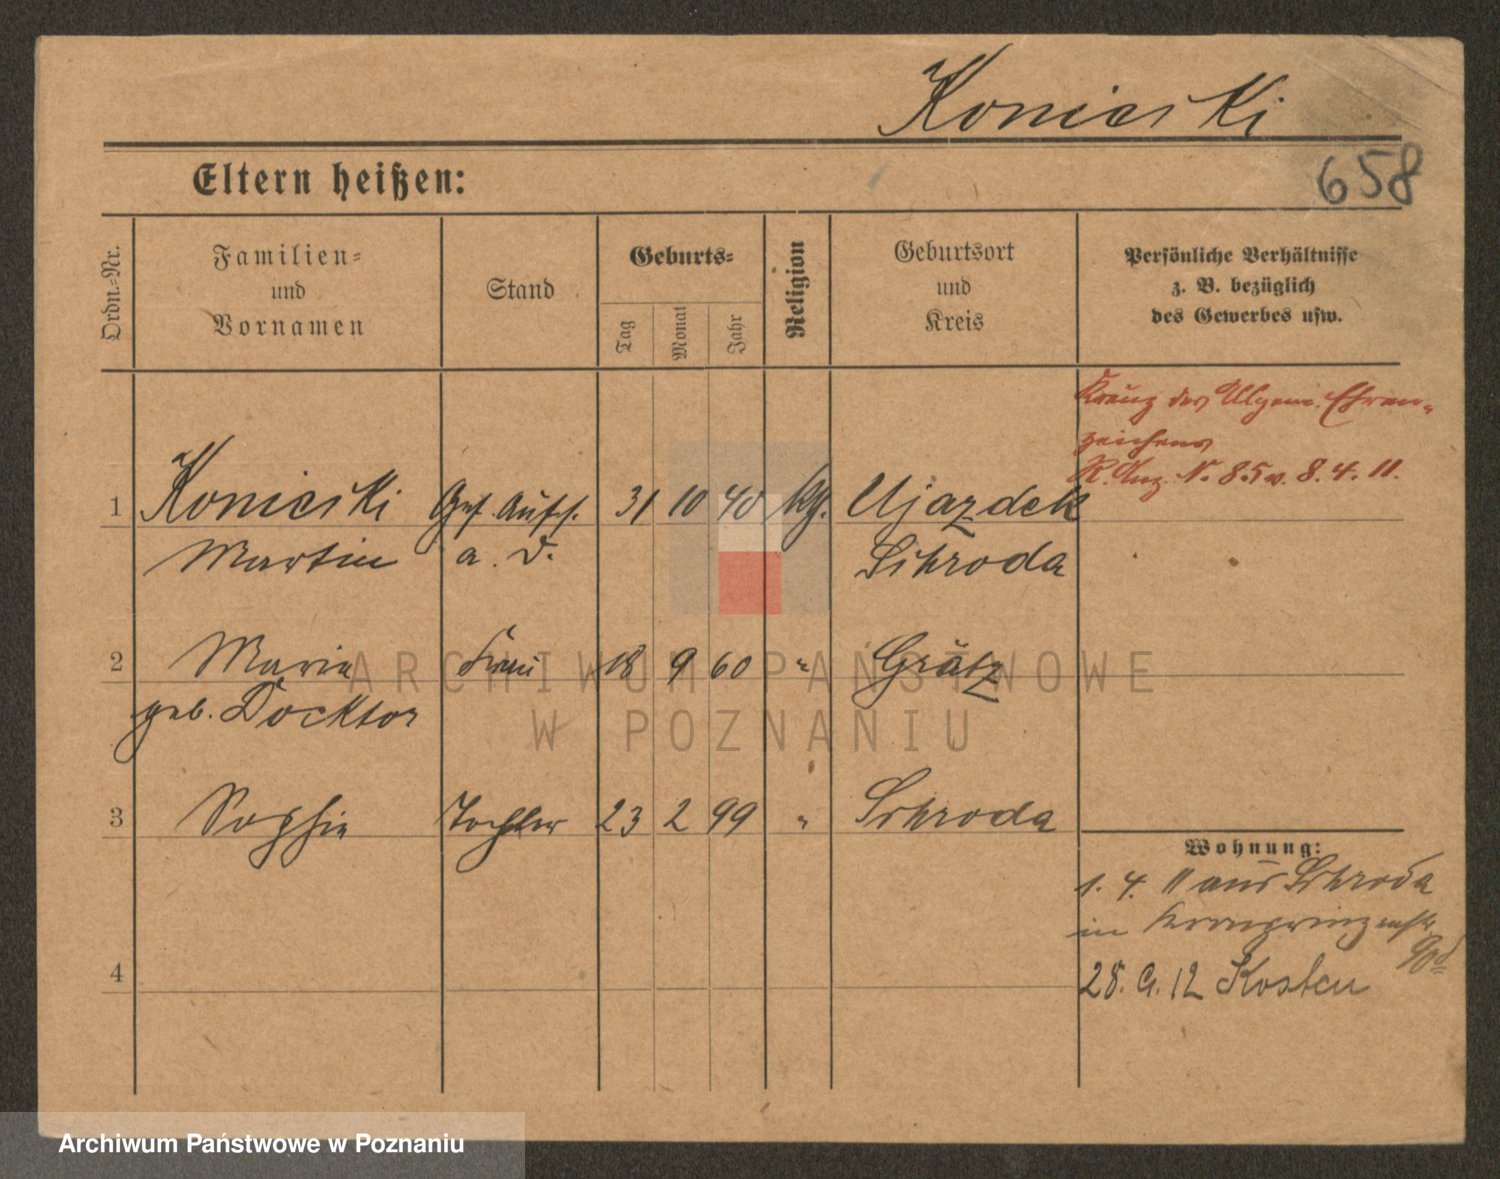 Konieski
Eltern heißen:
658
Ordn.-Nr.
Familien-
und
Vornamen
Stand
Geburts-
Tag
Monat
Jahr
Religion
Geburtsort
und
Kreis
Persönliche Verhältnisse
z. B. bezüglich
des Gewerbes usw.
Kreuz des Allgem. Ehren-
zeichens
R. Anz. N. 85 v. 8. 4. 11.
1 Konieski Gef. Aufs. 31 10 40 kth. Ujazdek
Martin a. D. Schroda
2 Maria Frau 18 9 60 " Grätz
geb. Docktor
3 Sophie Tochter 23 2 99 " Schroda
4
Wohnung:
1. 4. 11 aus Schroda
in Kronprinzenstr.
28. 9. 12 Kosten
ARCHIWUM PAŃSTWOWE
W POZNANIU
Archiwum Państwowe w Poznaniu